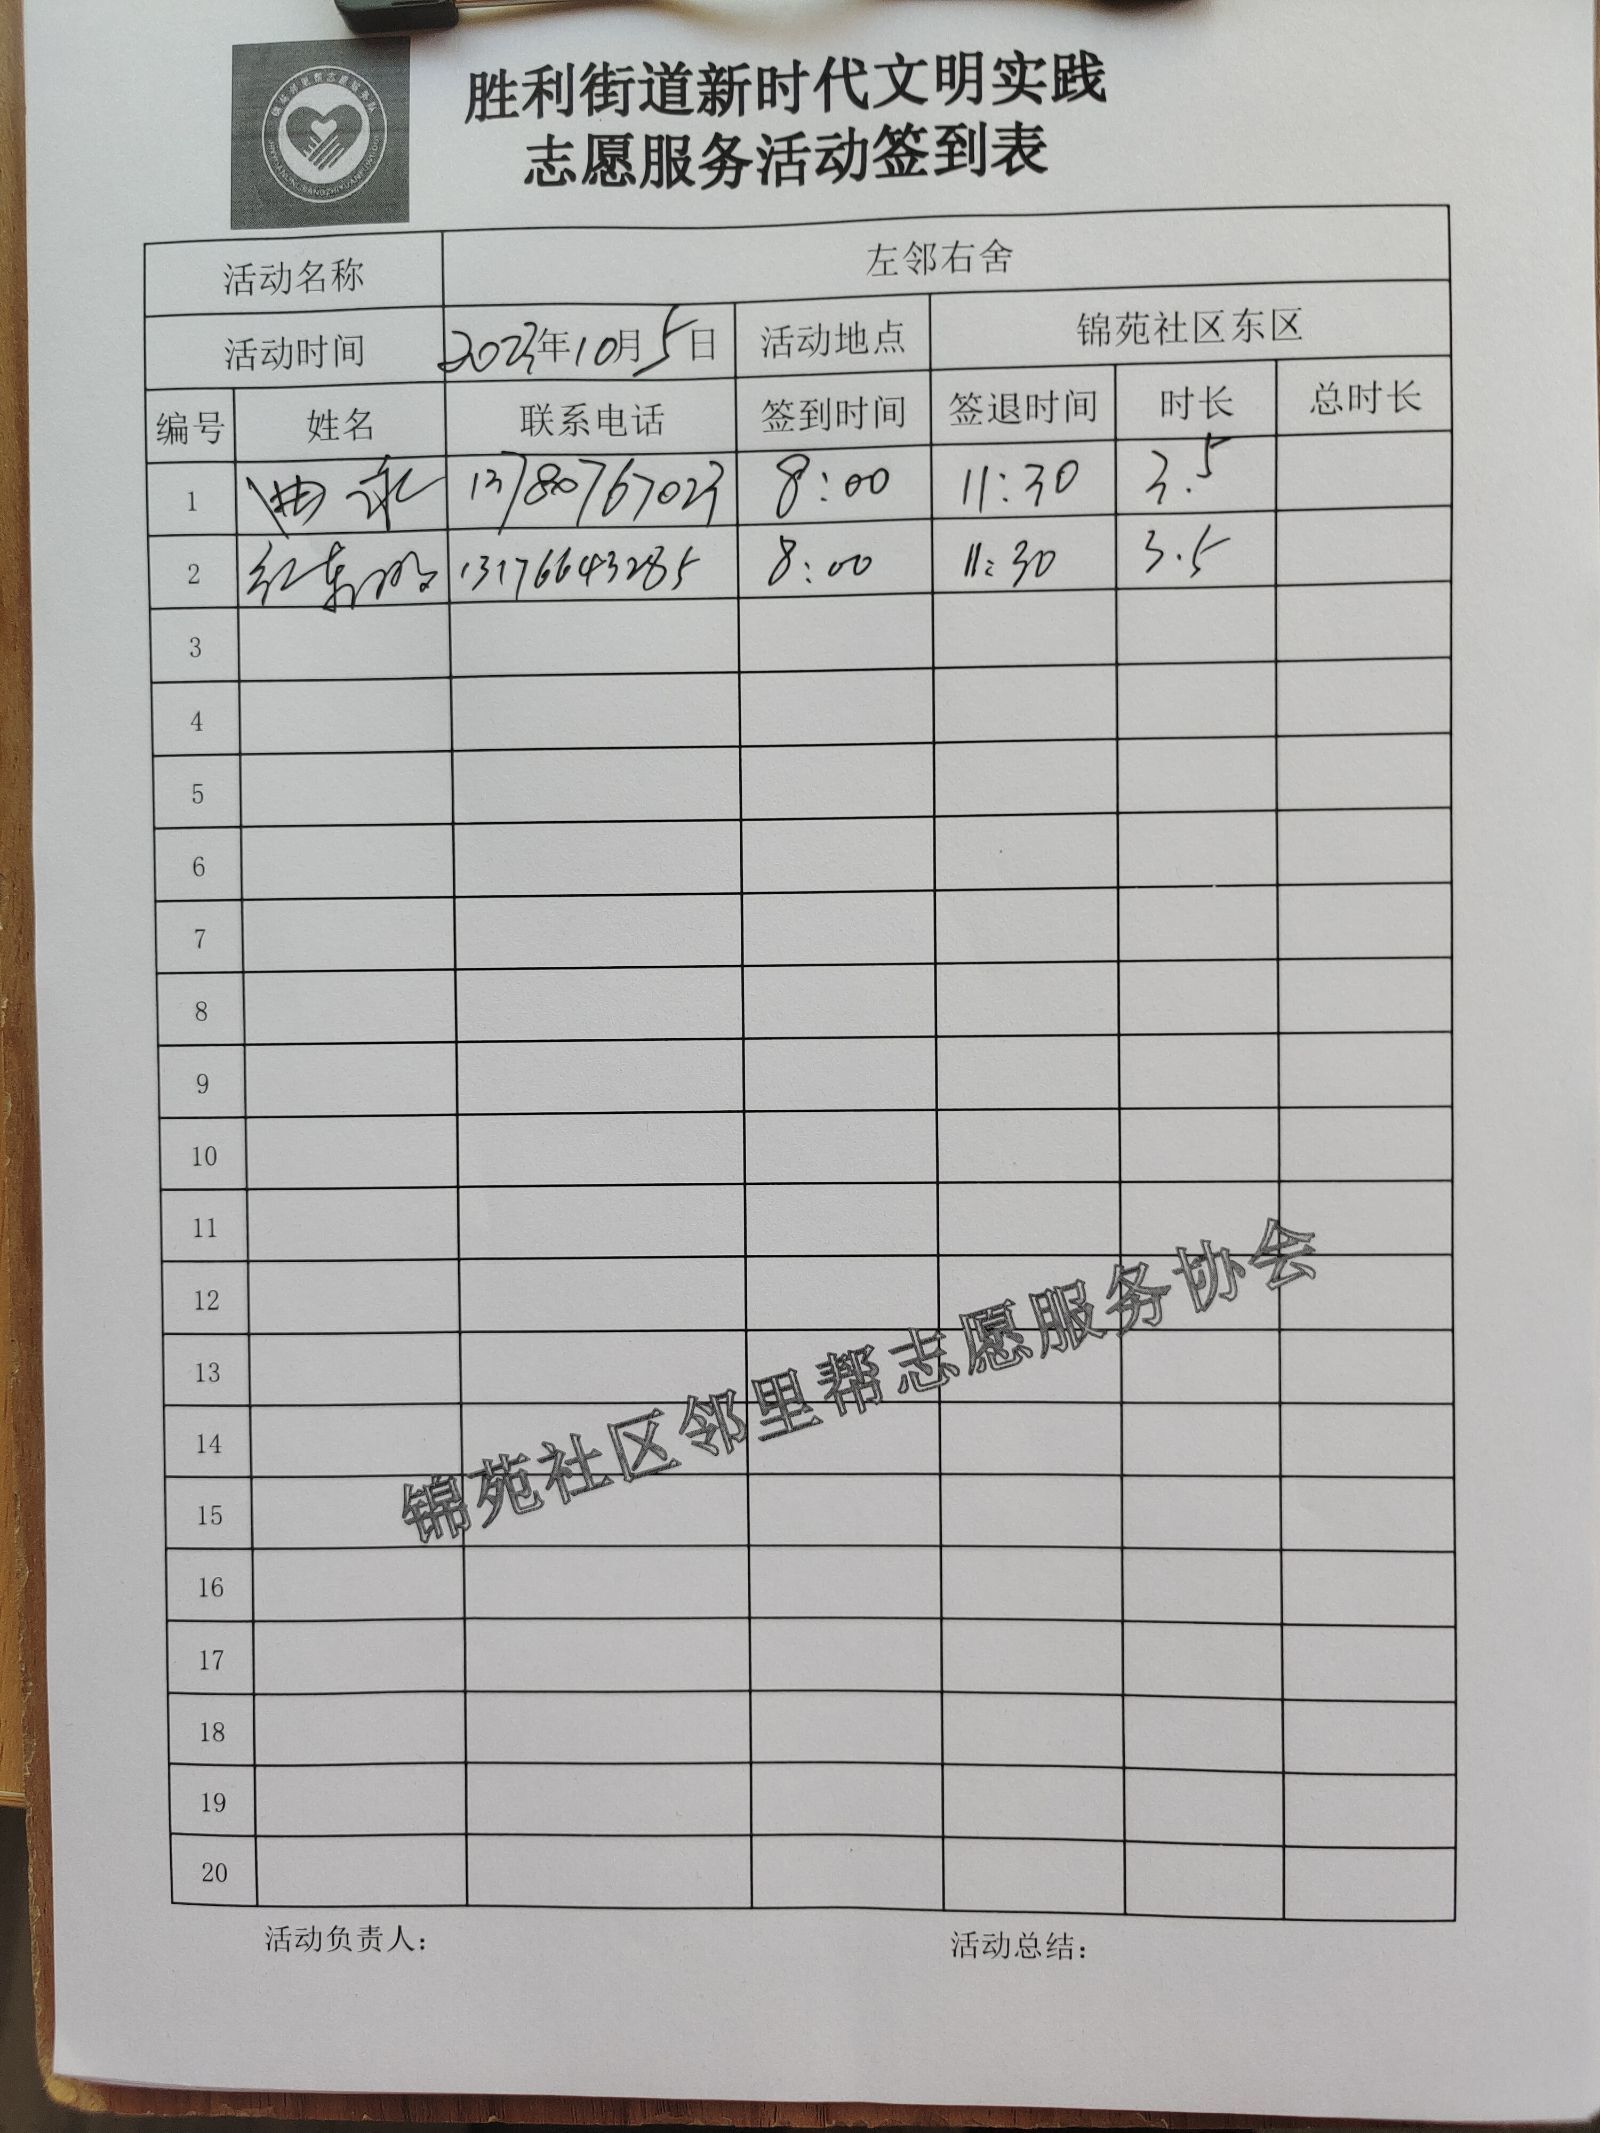 胜利街道新时代文明实践
志愿服务活动签到表
活动名称 左邻右舍
活动时间 2023年10月5日 活动地点 锦苑社区东区
编号 姓名 联系电话 签到时间 签退时间 时长 总时长
1 曲 13780767023 8:00 11:30 3.5
2 红东 13176643285 8:00 11:30 3.5
3
4
5
6
7
8
9
10
11
12
13
14
15
16
17
18
19
20
锦苑社区邻里帮志愿服务协会
活动负责人： 活动总结：